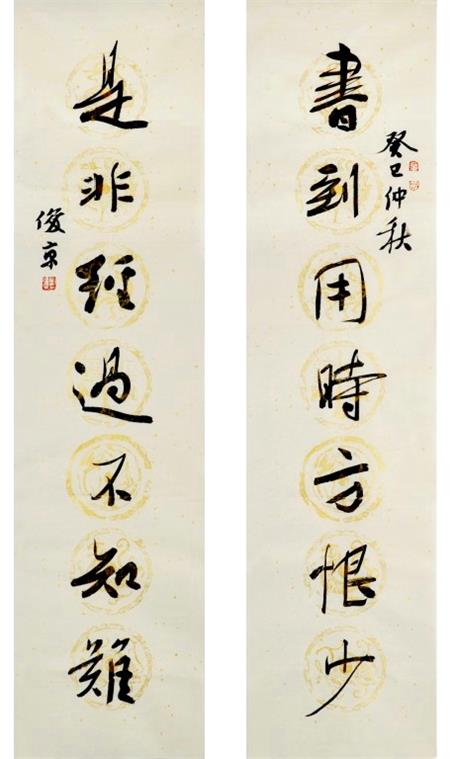 癸巳仲秋
書到用時方恨少
是非經過不知難
俊京